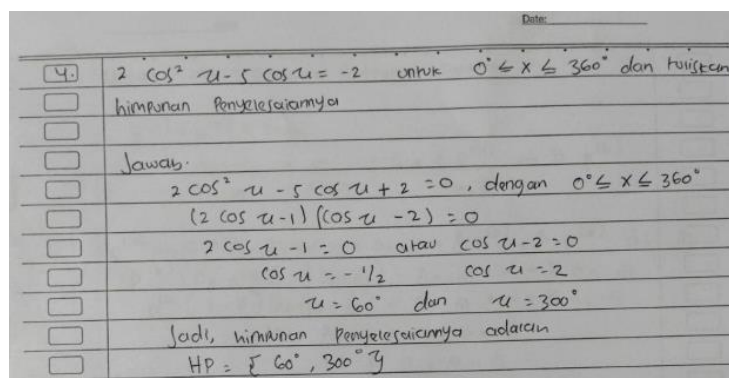 Date:
4. 2 cos² x - 5 cos x = -2 untuk 0° ≤ x ≤ 360° dan tuliskan
himpunan Penyelesaiannya
Jawab.
2 cos² x - 5 cos x + 2 = 0, dengan 0° ≤ x ≤ 360°
(2 cos x - 1) (cos x - 2) = 0
2 cos x - 1 = 0 atau cos x - 2 = 0
cos x = - 1/2 cos x = 2
x = 60° dan x = 300°
Jadi, himpunan Penyelesaiannya adalah
HP = { 60°, 300° }